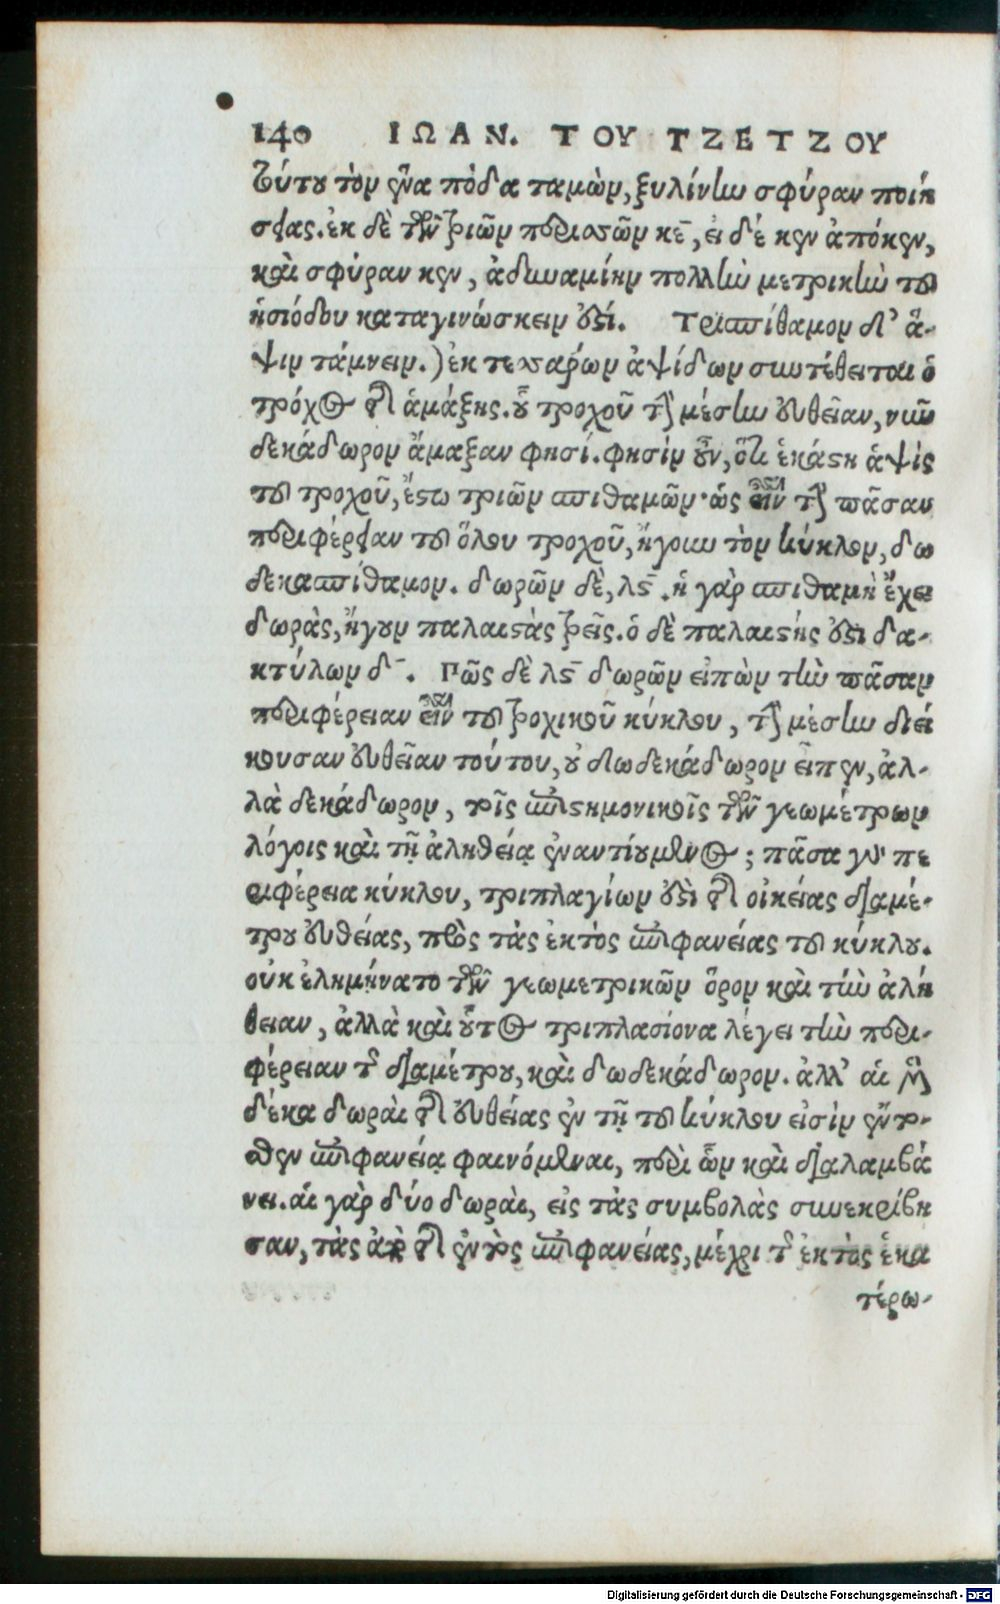 140 ΙΩΑΝ. ΤΟΥ ΤΖΕΤΖΟΥ
τούτου τὸν ἕνα πόδα ταμὼν, ξυλίνην σφύραν ποιή
σειας. ἐκ δὲ τῶν τριῶν περισσῶν κε̄, εἰ δέ κεν ἀπόκεν,
καὶ σφύραν κεν, ἀδυναμίην πολλὴν μετρικὴν τοῦ
ἡσιόδου καταγινώσκειν ἐστί. Τρισπίθαμον δ' ἄ-
ψιν τάμνειν.) ἐκ τεσσάρων ἀψίδων συντέθειται ὁ
τρόχος τῆς ἁμάξης. οὗ τροχοῦ τὴν μέσην εὐθεῖαν, νῦν
δεκάδωρον ἅμαξαν φησί. φησὶν οὖν, ὅτι ἑκάστη ἁψὶς
τοῦ τροχοῦ, ἔστω τριῶν σπιθαμῶν· ὡς εἶναι τὴν πᾶσαν
περιφέρειαν τοῦ ὅλου τροχοῦ, ἤγουν τὸν κύκλον, δω
δεκασπίθαμον. δωρῶν δὲ, λς̄. ἡ γὰρ σπιθαμὴ ἔχει
δωρὰς, ἤγουν παλαιστὰς τρεῖς. ὁ δὲ παλαιστής ἐστι δα-
κτύλων δ̄. Πῶς δὲ λς̄ δωρῶν εἰπὼν τὴν πᾶσαν
περιφέρειαν εἶναι τοῦ τροχικοῦ κύκλου, τὴν μέσην διεί
κουσαν εὐθεῖαν τούτου, οὐ δωδεκάδωρον εἶπεν, ἀλ-
λὰ δεκάδωρον, τοῖς ἐπιστημονικοῖς τῶν γεωμέτρων
λόγοις καὶ τῇ ἀληθείᾳ ἐναντίουμενος; πᾶσα γὰρ πε
ριφέρεια κύκλου, τριπλαγίων ἐστὶ τῆς οἰκείας διαμέ-
τρου εὐθείας, πρὸς τὰς ἐκτὸς ἐπιφανείας τοῦ κύκλου.
οὐκ ἐλημήνατο τῶν γεωμετρικῶν ὅρον καὶ τὴν ἀλή
θειαν, ἀλλὰ καὶ οὗτος τριπλασίονα λέγει τὴν περι-
φέρειαν τῆς διαμέτρου, καὶ δωδεκάδωρον. ἀλλ' αἱ μὲν
δέκα δωραὶ τῆς εὐθείας ἐν τῇ τοῦ κύκλου εἰσὶν ἔντο-
σθεν ἐπιφανείᾳ φαινόμεναι, περὶ ὧν καὶ διαλαμβά
νει. αἱ γὰρ δύο δωραὶ, εἰς τὰς συμβολὰς συνεκρίβη
σαν, τὰς ἀπὸ τῆς ἐντὸς ἐπιφανείας, μέχρι τῆς ἐκτὸς ἑκα
τέρω-
Digitalisierung gefördert durch die Deutsche Forschungsgemeinschaft - DFG